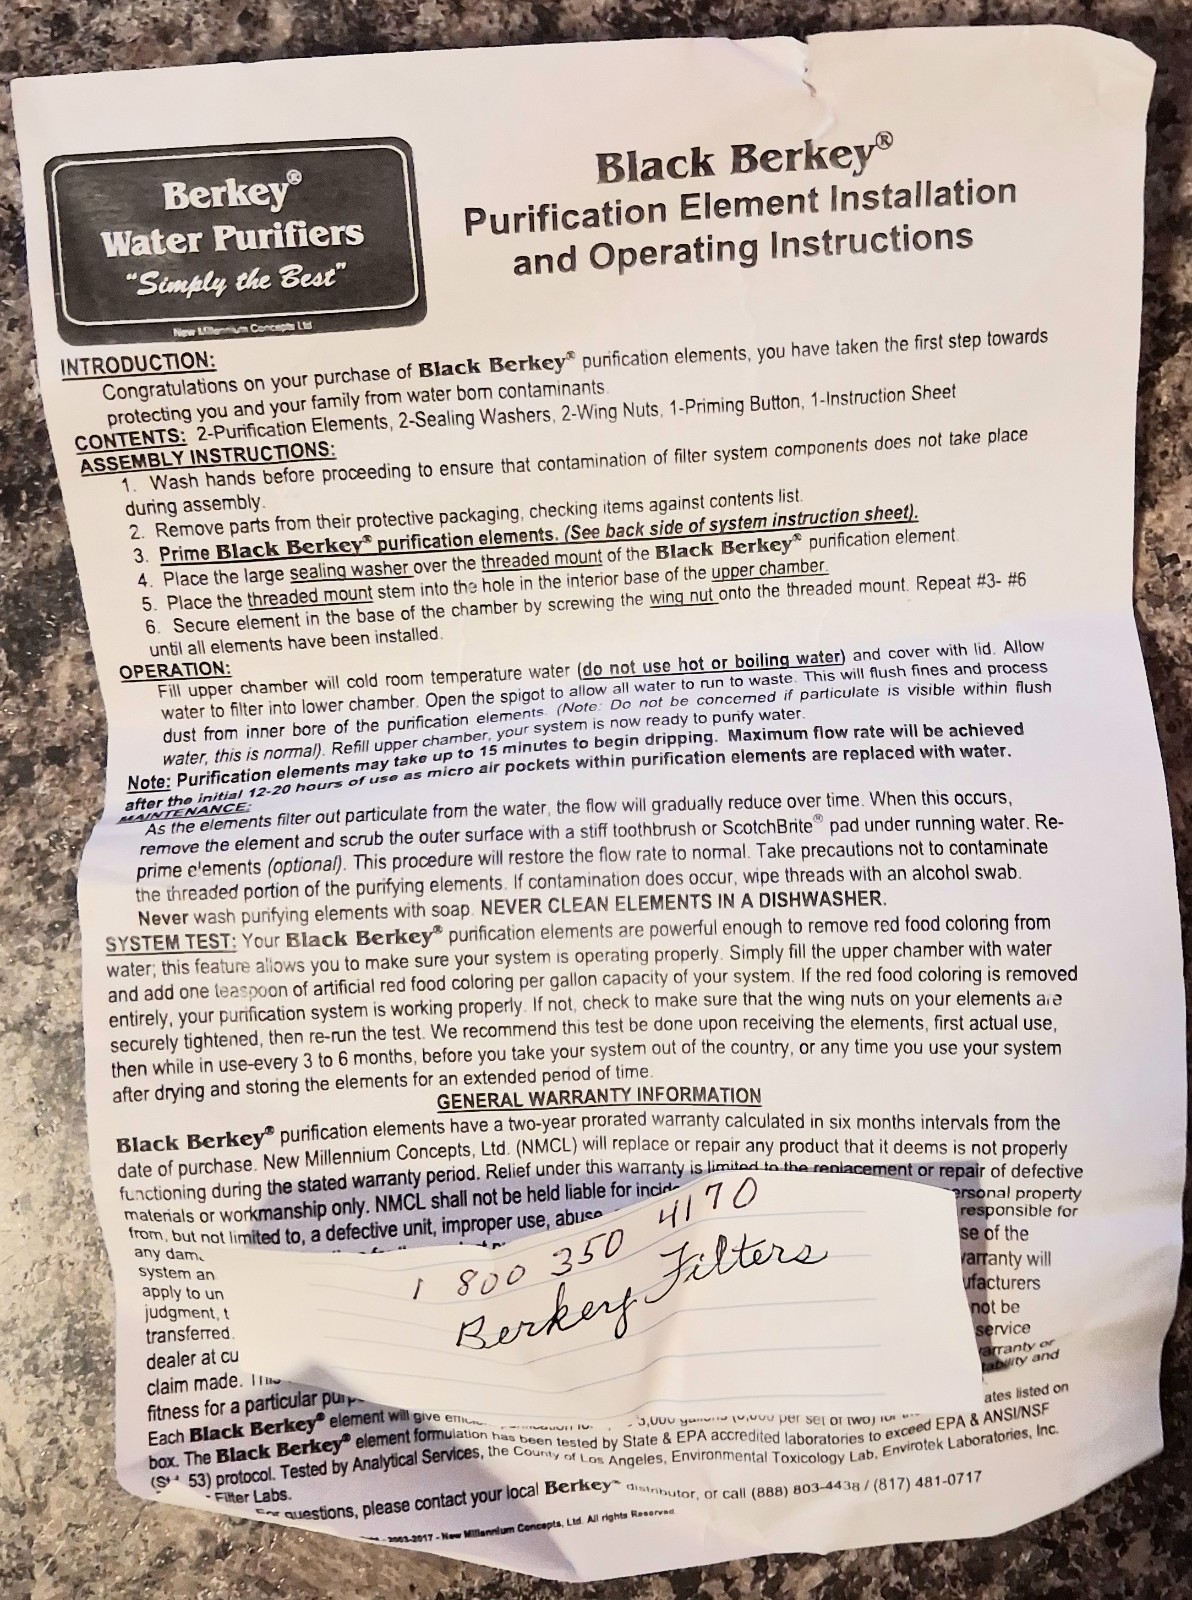 Berkey®
Water Purifiers
"Simply the Best"
New Millennium Concepts Ltd
Black Berkey®
Purification Element Installation
and Operating Instructions
INTRODUCTION:
Congratulations on your purchase of Black Berkey® purification elements, you have taken the first step towards
protecting you and your family from water born contaminants.
CONTENTS: 2-Purification Elements, 2-Sealing Washers, 2-Wing Nuts, 1-Priming Button, 1-Instruction Sheet
ASSEMBLY INSTRUCTIONS:
1. Wash hands before proceeding to ensure that contamination of filter system components does not take place
during assembly.
2. Remove parts from their protective packaging, checking items against contents list.
3. Prime Black Berkey® purification elements. (See back side of system instruction sheet).
4. Place the large sealing washer over the threaded mount of the Black Berkey® purification element.
5. Place the threaded mount stem into the hole in the interior base of the upper chamber.
6. Secure element in the base of the chamber by screwing the wing nut onto the threaded mount. Repeat #3- #6
until all elements have been installed.
OPERATION:
Fill upper chamber will cold room temperature water (do not use hot or boiling water) and cover with lid. Allow
water to filter into lower chamber. Open the spigot to allow all water to run to waste. This will flush fines and process
dust from inner bore of the purification elements. (Note: Do not be concerned if particulate is visible within flush
water, this is normal). Refill upper chamber, your system is now ready to purify water.
Note: Purification elements may take up to 15 minutes to begin dripping. Maximum flow rate will be achieved
after the initial 12-20 hours of use as micro air pockets within purification elements are replaced with water.
MAINTENANCE:
As the elements filter out particulate from the water, the flow will gradually reduce over time. When this occurs,
remove the element and scrub the outer surface with a stiff toothbrush or ScotchBrite® pad under running water. Re-
prime elements (optional). This procedure will restore the flow rate to normal. Take precautions not to contaminate
the threaded portion of the purifying elements. If contamination does occur, wipe threads with an alcohol swab.
Never wash purifying elements with soap. NEVER CLEAN ELEMENTS IN A DISHWASHER.
SYSTEM TEST: Your Black Berkey® purification elements are powerful enough to remove red food coloring from
water; this feature allows you to make sure your system is operating properly. Simply fill the upper chamber with water
and add one teaspoon of artificial red food coloring per gallon capacity of your system. If the red food coloring is removed
entirely, your purification system is working properly. If not, check to make sure that the wing nuts on your elements are
securely tightened, then re-run the test. We recommend this test be done upon receiving the elements, first actual use,
then while in use-every 3 to 6 months, before you take your system out of the country, or any time you use your system
after drying and storing the elements for an extended period of time.
GENERAL WARRANTY INFORMATION
Black Berkey® purification elements have a two-year prorated warranty calculated in six months intervals from the
date of purchase. New Millennium Concepts, Ltd. (NMCL) will replace or repair any product that it deems is not properly
functioning during the stated warranty period. Relief under this warranty is limited to the replacement or repair of defective
materials or workmanship only. NMCL shall not be held liable for personal property
from, but not limited to, a defective unit, improper use, abuse responsible for
any se of the
system an warranty will
apply to un ufacturers
judgment, t not be
transferred. service
dealer at cu arranty or
claim made. This tability and
fitness for a particular
Each Black Berkey® element will give 3,000 gallons (6,000 per set of two) ates listed on
box. The Black Berkey® element formulation has been tested by State & EPA accredited laboratories to exceed EPA & ANSI/NSF
53) protocol. Tested by Analytical Services, the County of Los Angeles, Environmental Toxicology Lab, Envirotek Laboratories, Inc.
Filter Labs.
questions, please contact your local Berkey® distributor, or call (888) 803-4438 / (817) 481-0717
2003-2017 - New Millennium Concepts, Ltd. All rights Reserved
1 800 350 4170
Berkey Filters